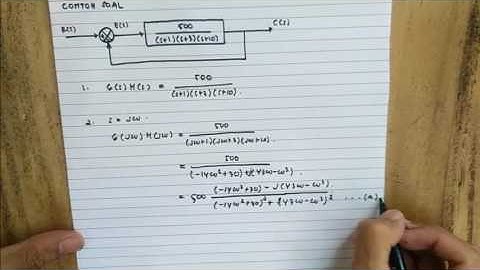 CONTOH SOAL
R(s) E(s) 500 / (s+1)(s+3)(s+10) C(s)
1. G(s) H(s) = 500 / (s+1)(s+3)(s+10) .
2. s = jω
G(jω) H(jω) = 500 / (jω+1)(jω+3)(jω+10) .
= 500 / (-14ω²+30) + j(43ω-ω³) .
= 500 (-14ω²+30) - j(43ω-ω³) / (-14ω²+30)² + (43ω-ω³)² ... (*)